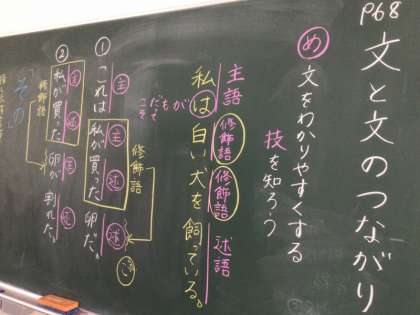 P68
文と文のつながり
め 文をわかりやすくする
技を知ろう
主語 修飾語 修飾語 述語
私は白い犬を飼っている。
が
も
だって
こそ
修飾語
主 主 述 述
① これは私が買った卵だ。
主 述 主 述
② 私が買った卵が割れた。
修飾語
「その」